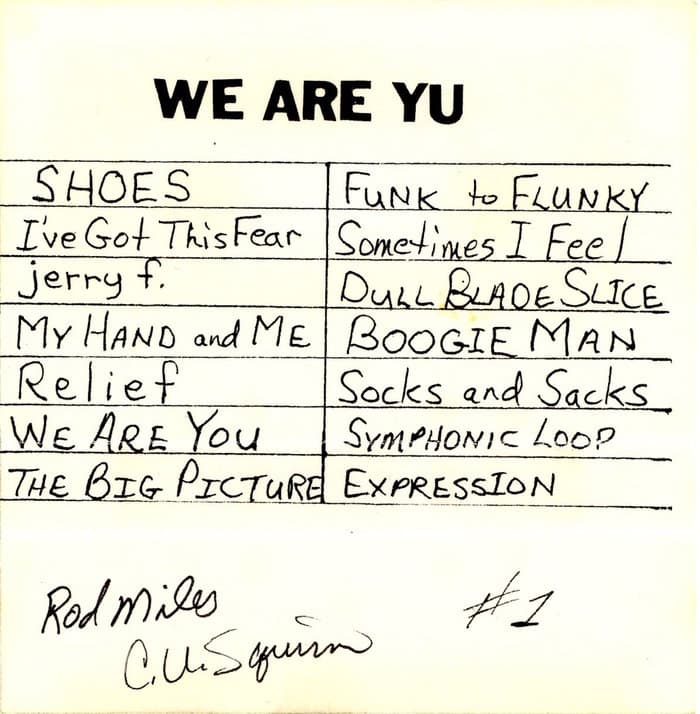 WE ARE YU
SHOES
I've Got This Fear
jerry f.
MY HAND and ME
Relief
WE ARE YOU
THE BIG PICTURE
FUNK to FLUNKY
Sometimes I Feel
DULL BLADE SLICE
BOOGIE MAN
Socks and Sacks
SYMPHONIC LOOP
EXPRESSION
Rod Miles
C.U. Squirm
#1